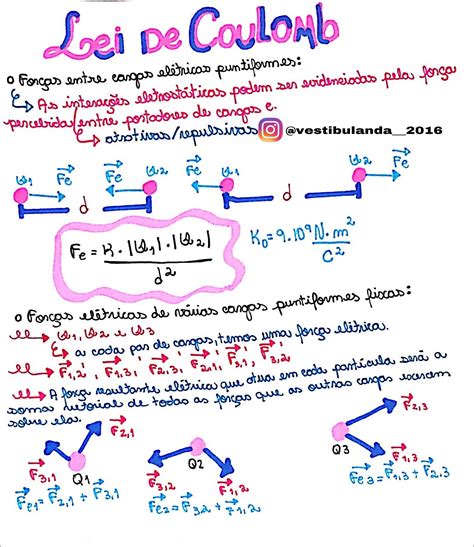 Lei de Coulomb
o Forças entre cargas elétricas puntiformes:
↳ As interações eletrostáticas podem ser evidenciadas pela força
percebida/entre portadores de cargas e.
↳ atrativas/repulsivas @vestibulanda__2016
Q1 Fe Fe Q2 Fe Q1 Q2 Fe
d d
Fe = K.|Q1|.|Q2| / d²
K0 = 9.10⁹ N.m² / C²
o Forças elétricas de várias cargas puntiformes fixas:
Q1, Q2 e Q3
↳ a cada par de cargas, temos uma força elétrica.
F1,2; F1,3; F2,3, F2,1, F3,1, F3,2
A força resultante elétrica que atua em cada partícula será a
soma vetorial de todas as forças que as outras cargas exercem
sobre ela:
F2,1 F2,3
F3,1 Q1 Q2 Q3
F3,2 F1,2 F1,3
Fe1 = F2,1 + F3,1 Fe2 = F3,2 + F1,2 Fe3 = F1,3 + F2,3